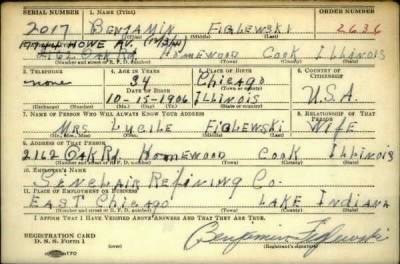 SERIAL NUMBER 1. NAME (Print) ORDER NUMBER
2017 BENJAMIN FIGLEWSKI 2636
HOWE AV.
2162 OAK RD HOMEWOOD COOK ILLINOIS
(Number and street or R. F. D. number) (Town) (County) (State)
3. TELEPHONE 4. AGE IN YEARS 5. PLACE OF BIRTH 6. COUNTRY OF CITIZENSHIP
none 34 Chicago
DATE OF BIRTH (Town or county)
10-15-1906 ILLINOIS U.S.A.
(Exchange) (Number) (Mo.) (Day) (Yr.) (State or country)
7. NAME OF PERSON WHO WILL ALWAYS KNOW YOUR ADDRESS 8. RELATIONSHIP OF THAT PERSON
MRS LUCILE FIGLEWSKI WIFE
(Mr., Mrs., Miss) (First) (Middle) (Last)
9. ADDRESS OF THAT PERSON
2162 OAK Rd HOMEWOOD COOK ILLINOIS
(Number and street or R. F. D. number) (Town) (County) (State)
10. EMPLOYER'S NAME
SINCLAIR REFINING CO.
11. PLACE OF EMPLOYMENT OR BUSINESS
EAST CHICAGO LAKE INDIANA
(Number and street or R. F. D. number) (Town) (County) (State)
I AFFIRM THAT I HAVE VERIFIED ABOVE ANSWERS AND THAT THEY ARE TRUE.
REGISTRATION CARD
D. S. S. Form 1
Benjamin Figlewski